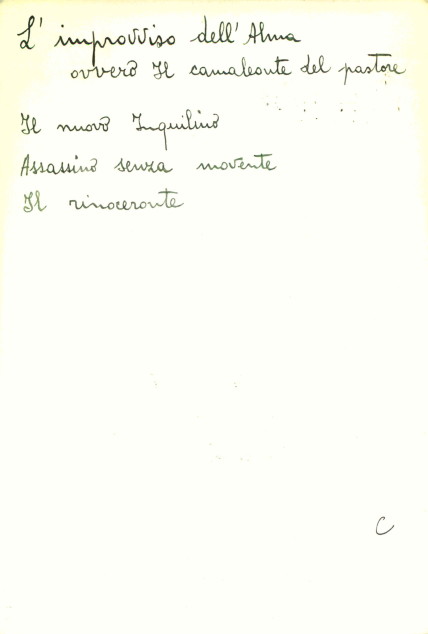 L'improvviso dell'Alma
ovvero Il camaleonte del pastore
Il nuovo Inquilino
Assassino senza movente
Il rinoceronte
C